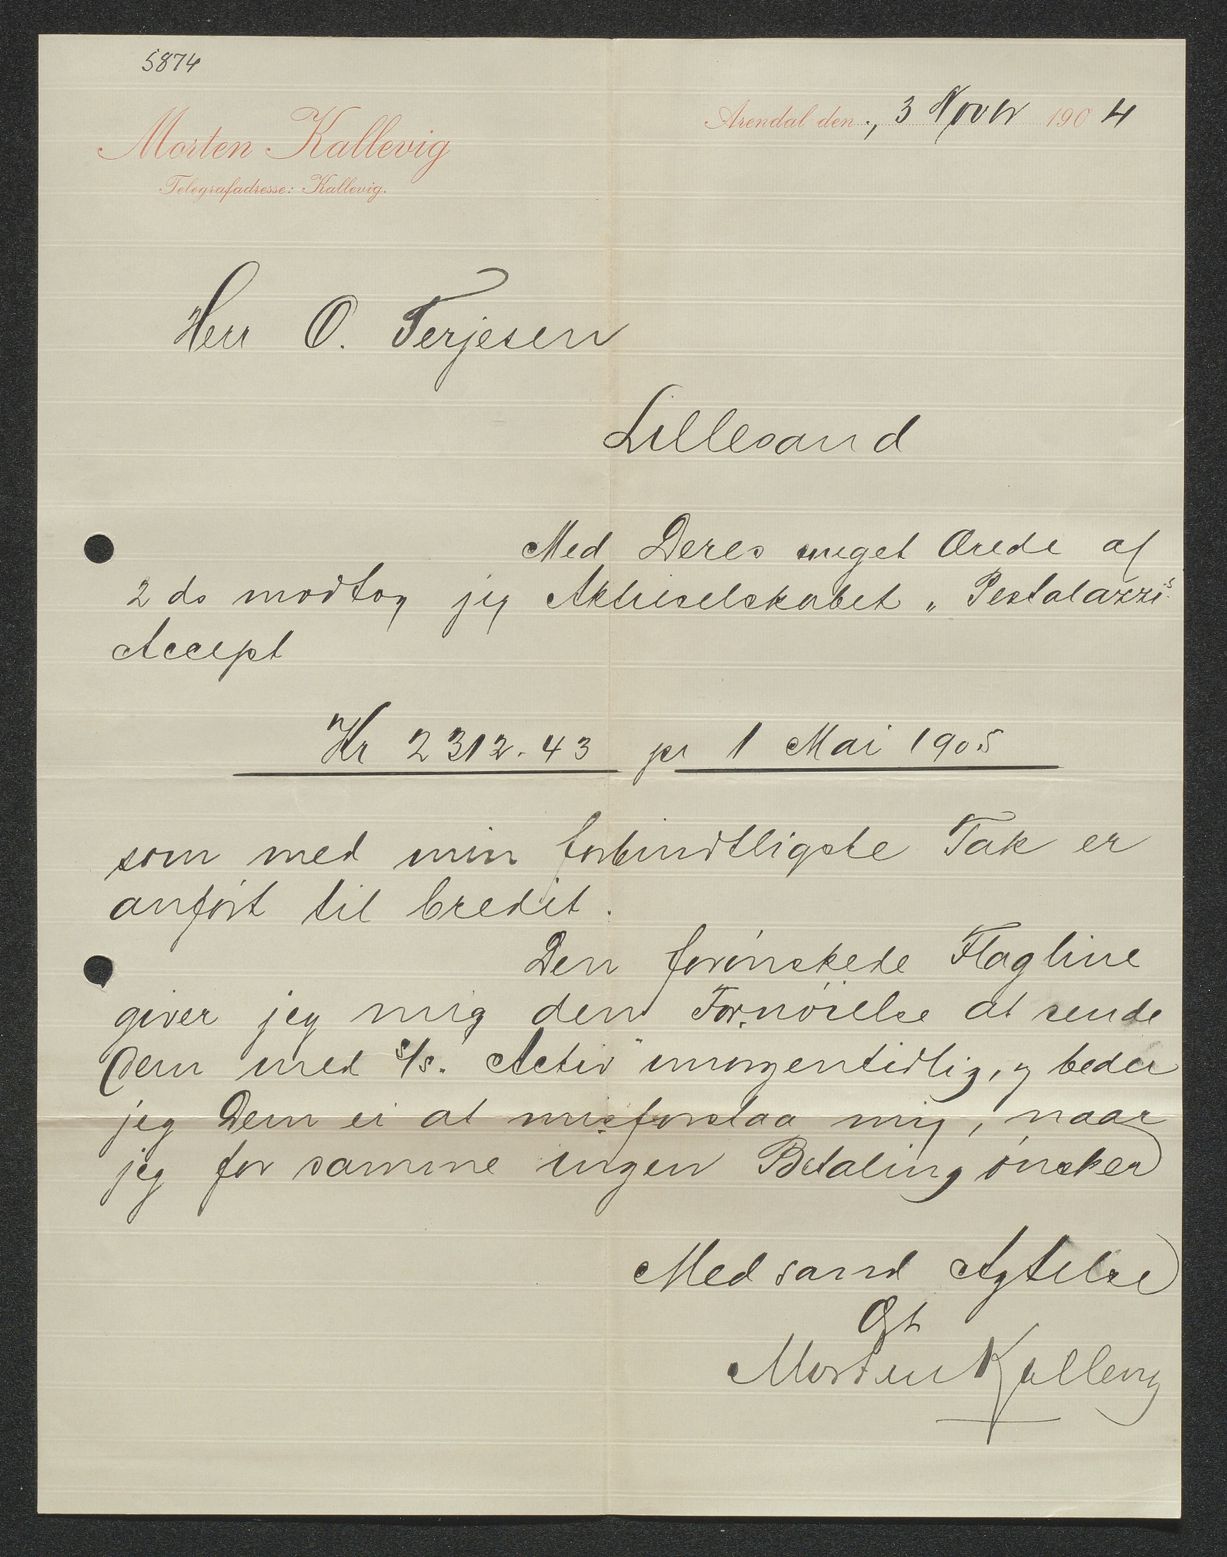 5874
Morten Kallevig
Telegrafadresse: Kallevig.
Arendal den 3 Novbr 1904
Herr O. Terjesen
Lillesand
Med Deres meget Ærede af
2 ds modtog jeg Aktieselskabet "Pestalozzi's
Accept
Kr 2312.43 pr 1 Mai 1905
som med min forbindtligste Tak er
anført til Credit.
Den forønskede Flagline
giver jeg mig den Fornøielse at sende
Dem med S/S. Activ" imorgentidlig, og beder
jeg Dem ei at misforstaa mig, naar
jeg for samme ingen Betaling ønsker
Med sand Agtelse
Morten Kallevig